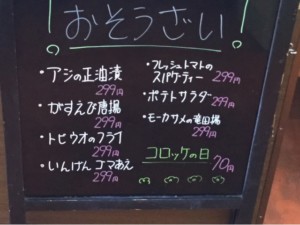 ！おそうざい！
・アジの正油漬
299円
・がすえび唐揚
299円
・トビウオのフライ
299円
・いんげんゴマあえ
299円
・フレッシュトマトの
スパゲーティー 299円
・ポテトサラダー
299円
・モーカサメの竜田揚
299円
コロッケの日
70円